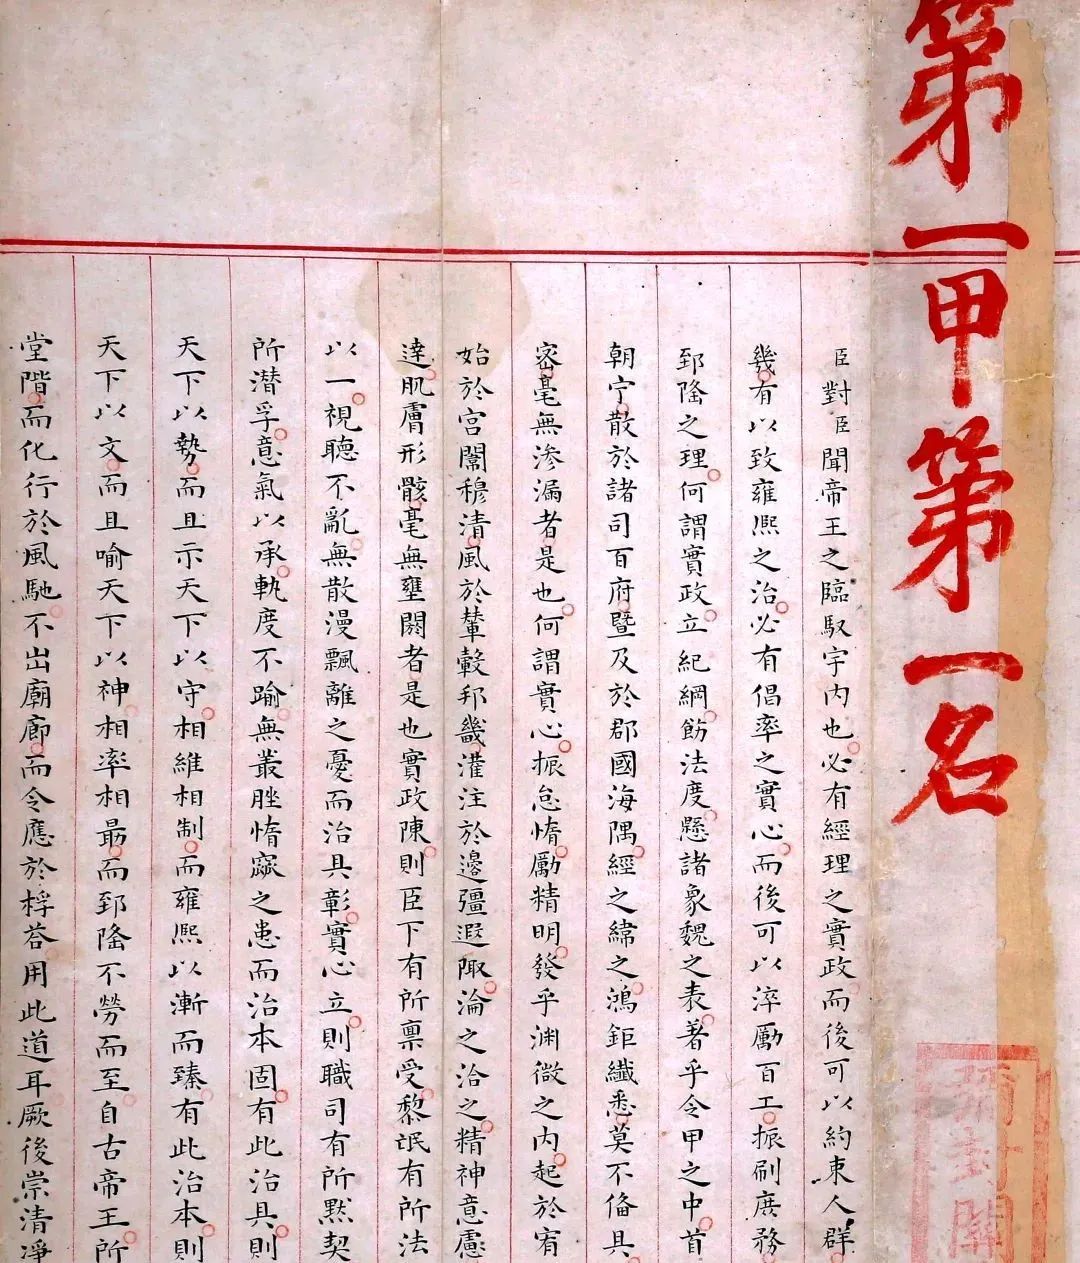 第一甲第一名
臣對臣聞帝王之臨馭宇內也必有經理之實政而後可以約束人群
幾有以致雍熙之治必有倡率之實心而後可以淬勵百工振刷庶務
郅隆之理何謂實政立紀綱飭法度懸諸象魏之表著乎令甲之中首
朝宁散於諸司百府暨及於郡國海隅經之緯之鴻鉅纖悉莫不俻具
宻毫無滲漏者是也何謂實心振怠惰勵精明發乎渊微之內起於宥
始於宮闈穆清風於輦轂邦畿灌注於邊疆遐陬淪之洽之精神意慮
達肌膚形骸毫無壅閼者是也實政陳則臣下有所禀受黎氓有所法
以一視聽不亂無散漫飄離之憂而治具彰實心立則職司有所默契
所潜孚意氣以承軌度不踰無叢脞惰窳之患而治本固有此治具則
天下以勢而且示天下以守相維相制而雍熙以漸而臻有此治本則
天下以文而且喻天下以神相率相朂而郅隆不勞而至自古帝王所
堂階而化行於風馳不出廟廊而令應於桴答用此道耳厥後崇清凈
彌封關